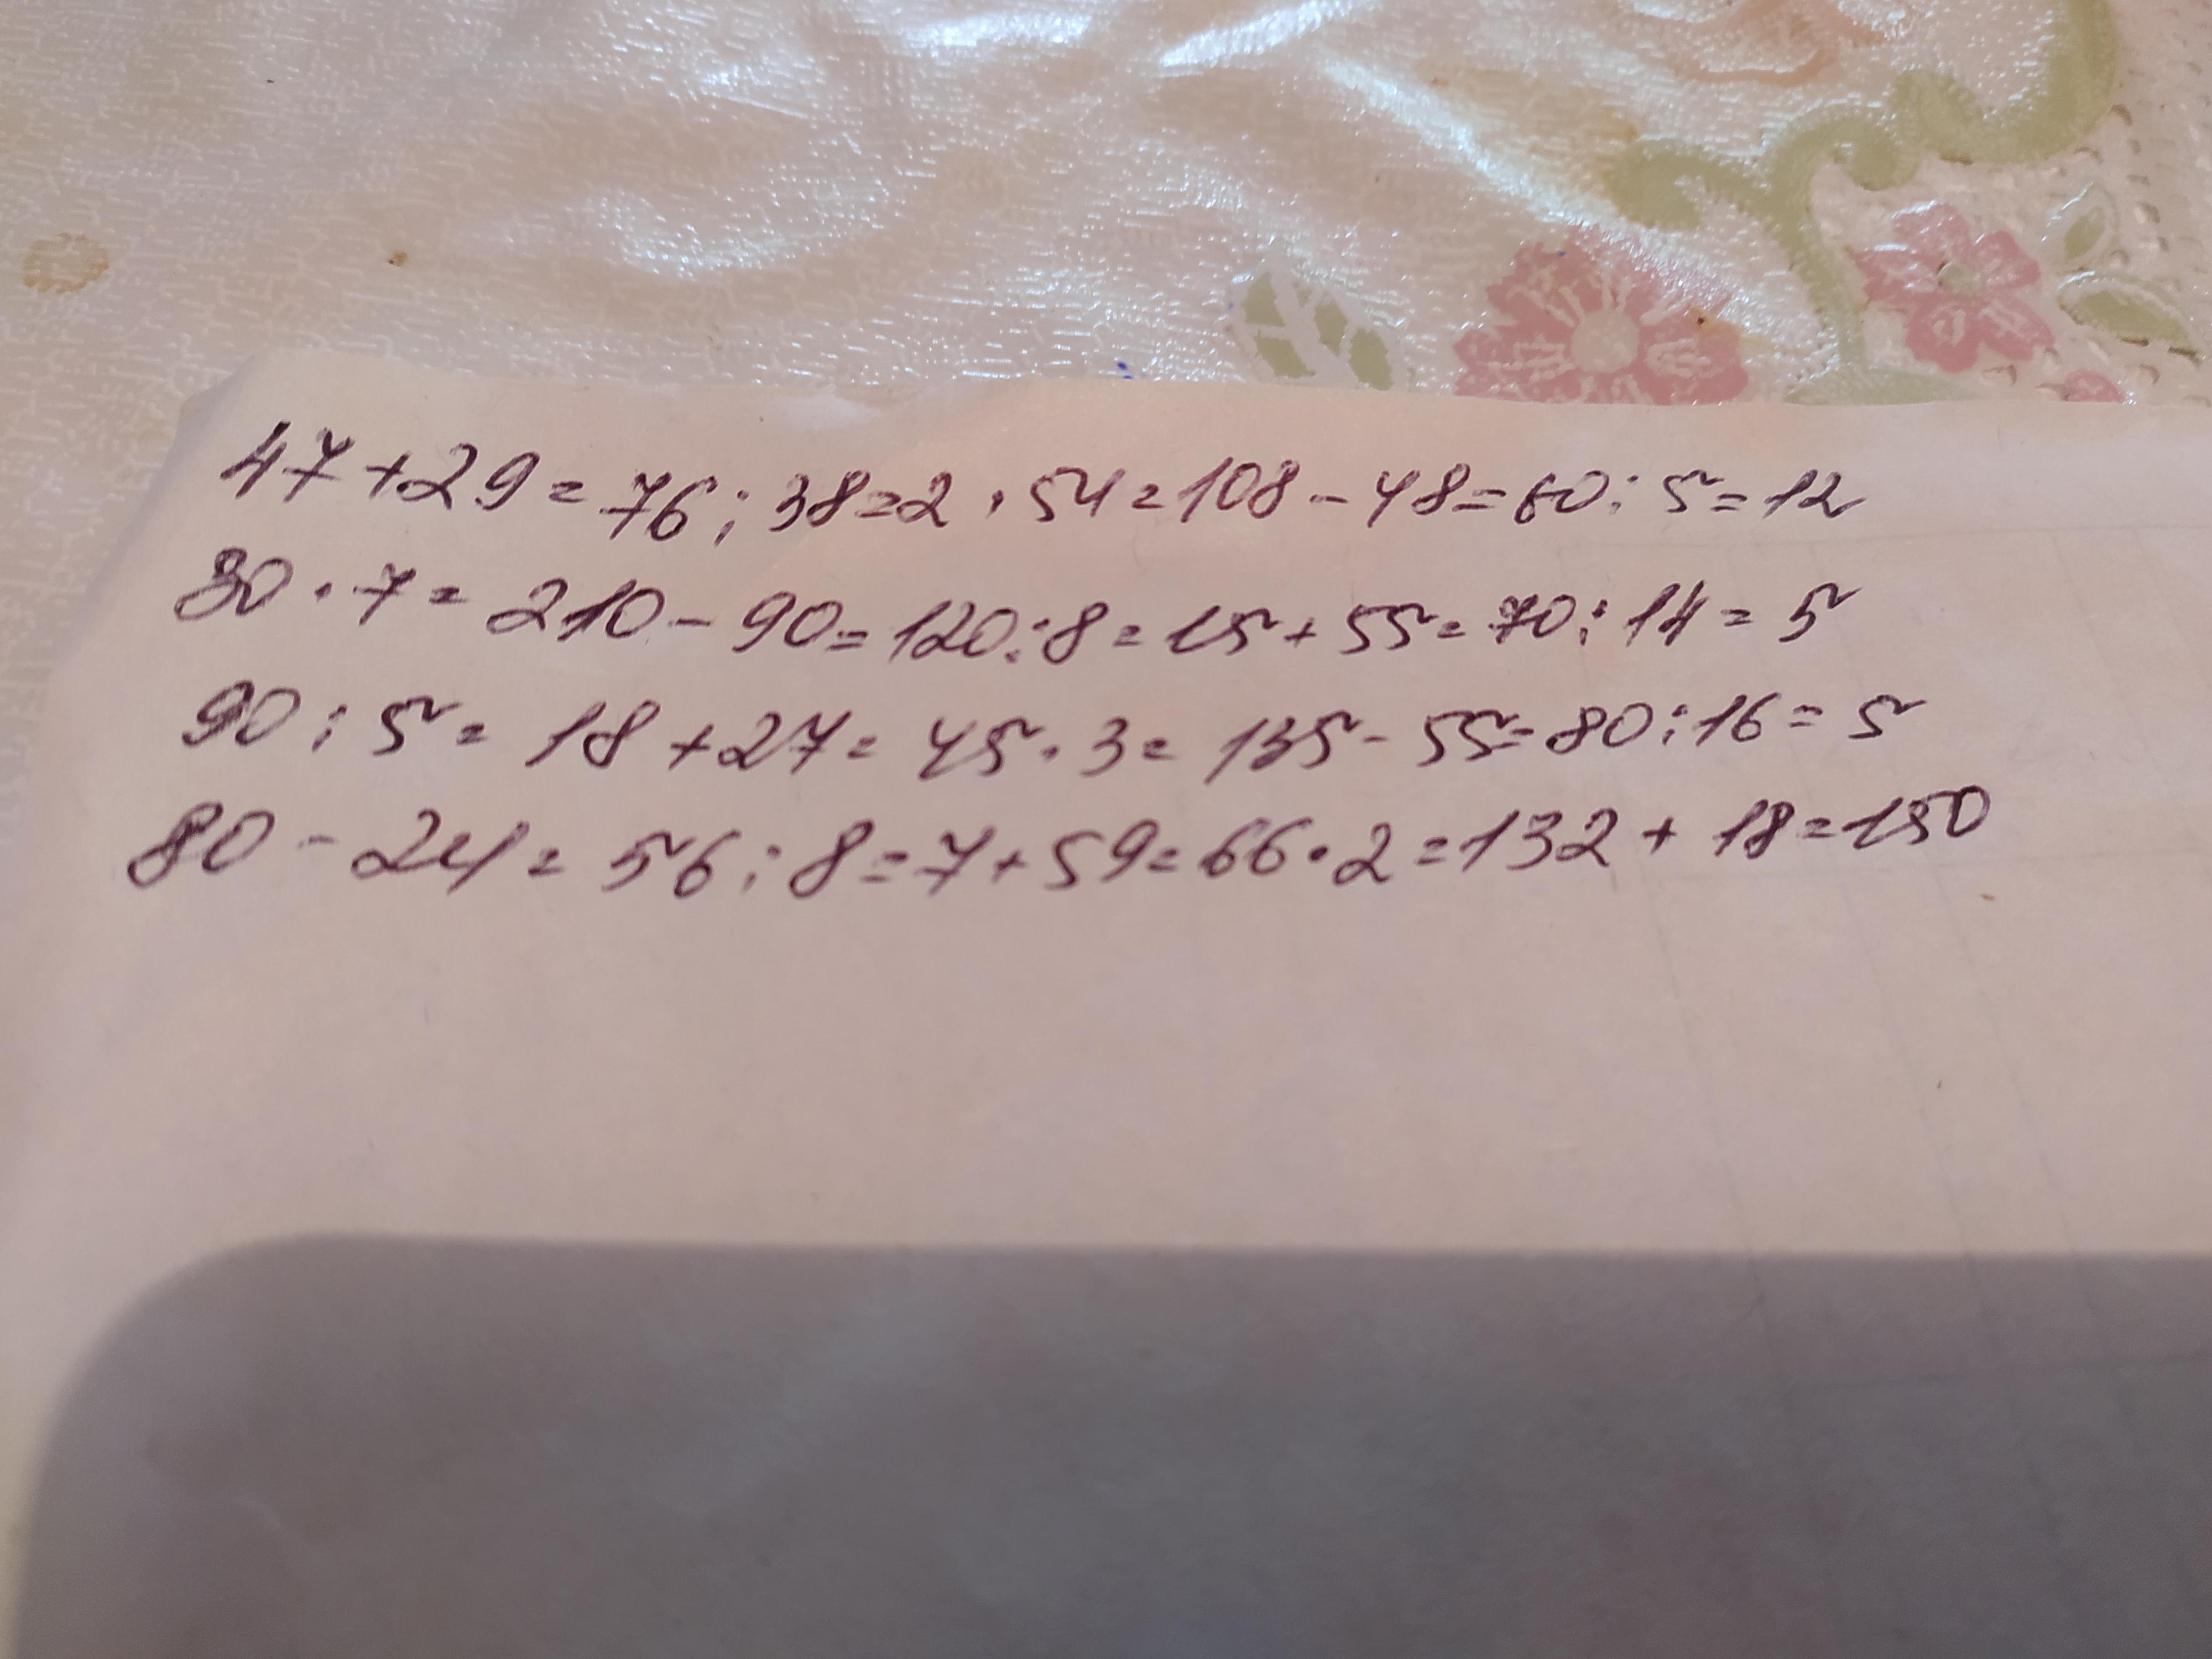 47+29=76:38=2·54=108-48=60:5=12
30·7=210-90=120:8=15+55=70:14=5
90:5=18+27=45·3=135-55=80:16=5
80-24=56:8=7+59=66·2=132+18=150